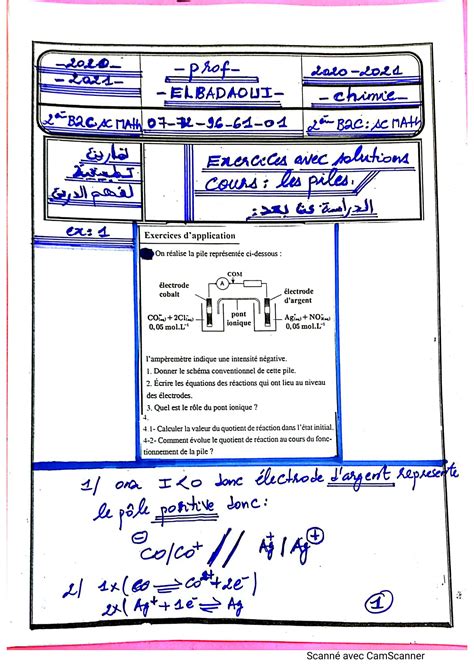 -2020-
-2021-
-prof-
-ELBADAOUI-
2020-2021
-chimie-
2ème B2C: SC MATH
07-72-96-61-01
2ème B2C: SC MATH
تمارين
تطبيقية
لفهم الدرس
Exercices avec solutions
cours: les piles.
الدراسة عن بعد:
ex: 1
Exercices d'application
On réalise la pile représentée ci-dessous :
COM
A
électrode
cobalt
électrode
d'argent
CO²⁺(aq) + 2Cl⁻(aq)
0,05 mol.L⁻¹
pont
ionique
Ag⁺(aq) + NO₃⁻(aq)
0,05 mol.L⁻¹
l'ampèremètre indique une intensité négative.
1. Donner le schéma conventionnel de cette pile.
2. Écrire les équations des réactions qui ont lieu au niveau
des électrodes.
3. Quel est le rôle du pont ionique ?
4.
4.1- Calculer la valeur du quotient de réaction dans l'état initial.
4-2- Comment évolue le quotient de réaction au cours du fonc-
tionnement de la pile ?
1/ on a I<0 donc électrode d'argent représente
le pôle positive donc:
⊖ CO/CO⁺ // Ag⁺/Ag ⊕
2/ 1x(CO ⇌ CO²⁺+2e⁻)
2x(Ag⁺+1e⁻ ⇌ Ag
1
Scanné avec CamScanner